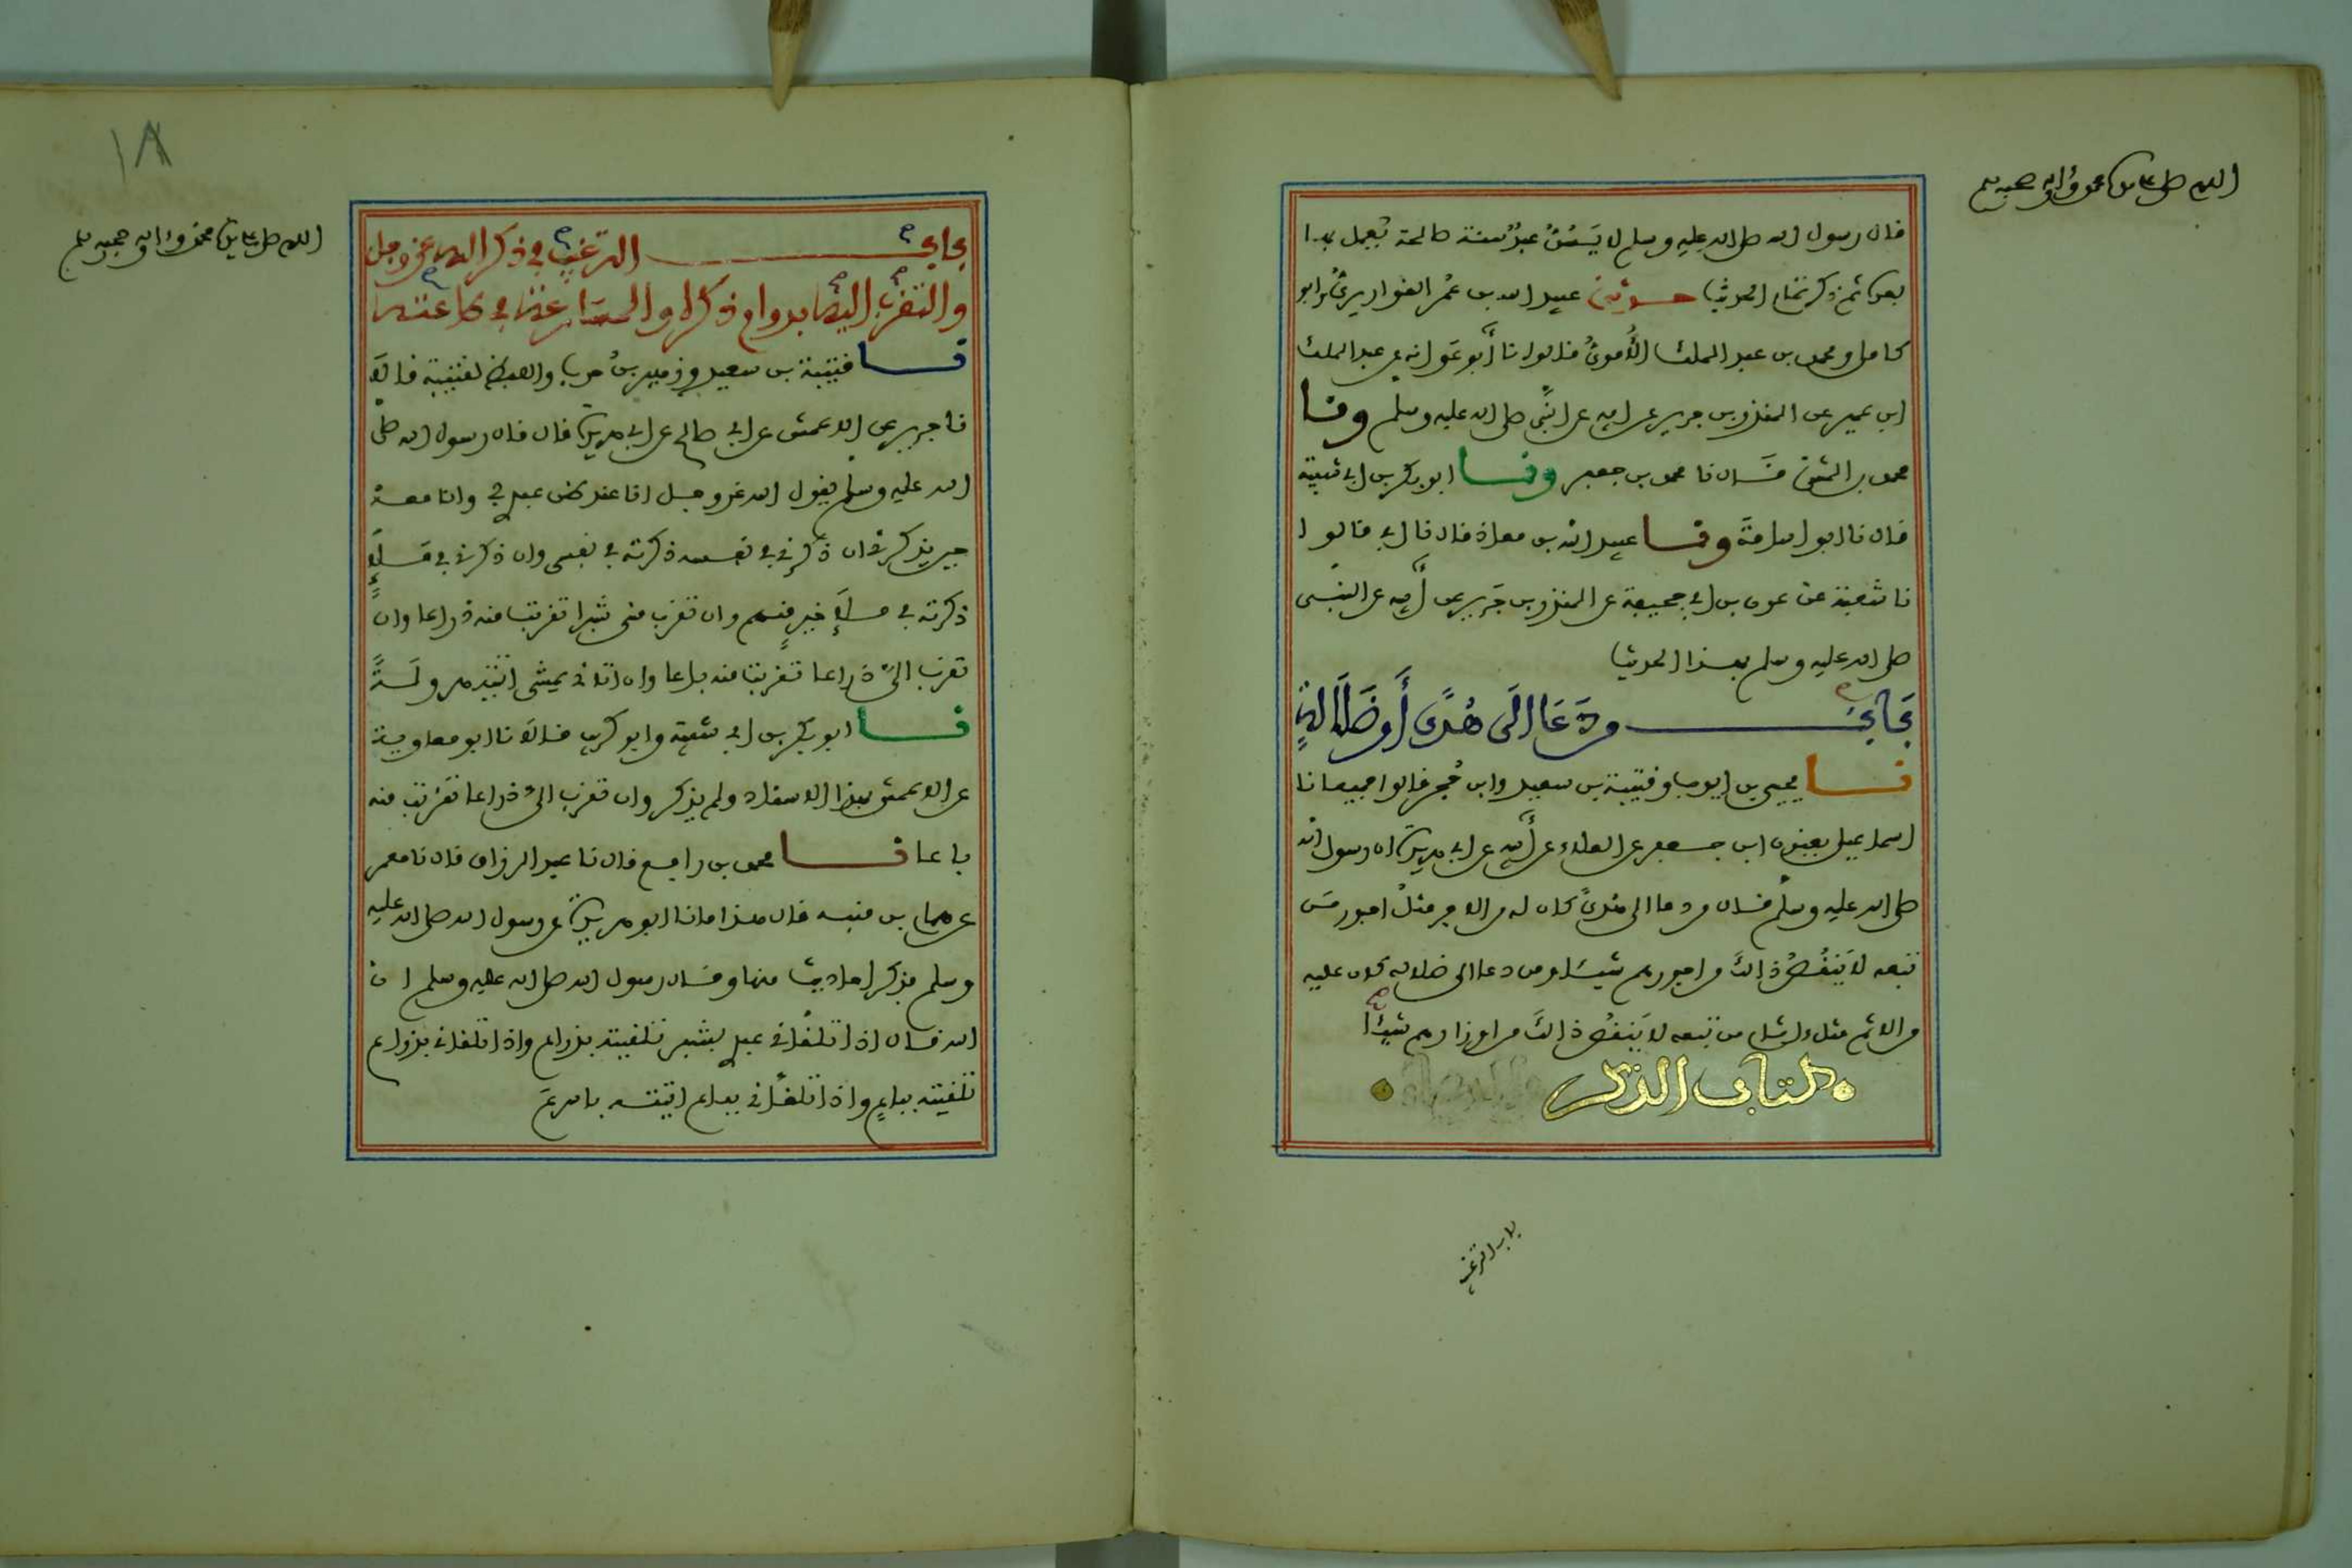 اللهم صل على سيدنا محمد وءاله وصحبه وسلم
قال رسول الله صلى الله عليه وسلم لا يَسُنُّ عبدٌ سنة صالحة يُعمل بها
بعده ثم ذكر تمام الحديث حدثني عبيد الله بن عُمر القواريريُّ وابو
كامل ومحمد بن عبد الملك الأُمويُّ قالوا نا أبو عَوانة عن عبد الملك
ابن عمير عن المنذر بن جرير عن ابيه عن النبي صلى الله عليه وسلم ونا
محمد بن المثنى قال نا محمد بن جعفر ونا ابو بكر بن ابي شيبة
قال نا ابو اسامة ونا عبيد الله بن معاذ قال نا ابي قالوا
نا شعبة عن عون بن ابي جحيفة عن المنذر بن جَرير عن أبيه عن النبي
صلى الله عليه وسلم بهذا الحديث
بَابُ من دَعَا الَى هُدًى أَو ضَلَالَةٍ
نا يحيى بن ايوب وقتيبة بن سعيد وابن حُجر قالوا جميعا نا
اسماعيل يعنون ابن جعفر عن العلاء عن أبيه عن ابي هريرة ان رسول الله
صلى الله عليه وسلم قال من دعا الى هدىً كان له من الاجر مثلُ اجور من
تبعه لا يَنقُصُ ذالكَ من اجورهم شيئا ومن دعا الى ضلالة كان عليه
من الاثم مثل ءاثام من تبعه لا يَنقُصُ ذالكَ من اوزارهم شيئًا
كتاب الذكر
باب الترغيب
١٨
اللهم صل على سيدنا محمد وءاله وصحبه وسلم
بابُ الترغيب في ذكر الله عز وجل
والتقرب اليه بدوام ذكره والمسارعة في طاعته
نا قتيبة بن سعيد وزهير بن حرب واللفظ لقتيبة قالا
نا جرير عن الاعمش عن ابي صالح عن ابي هريرة قال قال رسول الله صلى
الله عليه وسلم يقول الله عز وجل انا عند ظن عبدي وانا معه
حين يذكرني ان ذكرني في نفسه ذكرته في نفسي وان ذكرني في ملإٍ
ذكرته في ملإٍ خيرٍ منهم وان تقرب مني شبرا تقربت منه ذراعا وان
تقرب اليَّ ذراعا تقربت منه باعا وان اتاني يمشي اتيته هرولَةً
نا ابو بكر بن ابي شيبة وابو كريب قالا نا ابو معاوية
عن الاعمش بهذا الاسناد ولم يذكر وان تقرب اليَّ ذراعا تقربت منه
باعا نا محمد بن رافع قال نا عبد الرزاق قال نا معمر
عن همام بن منبه قال هذا ما نا ابو هريرة عن رسول الله صلى الله عليه
وسلم فذكر احاديث منها وقال رسول الله صلى الله عليه وسلم ان
الله قال اذا تلقاني عبدي بشبر تلقيته بذراع واذا تلقاني بذراع
تلقيته بباعٍ واذا تلقاني بباع اتيته باسرعَ